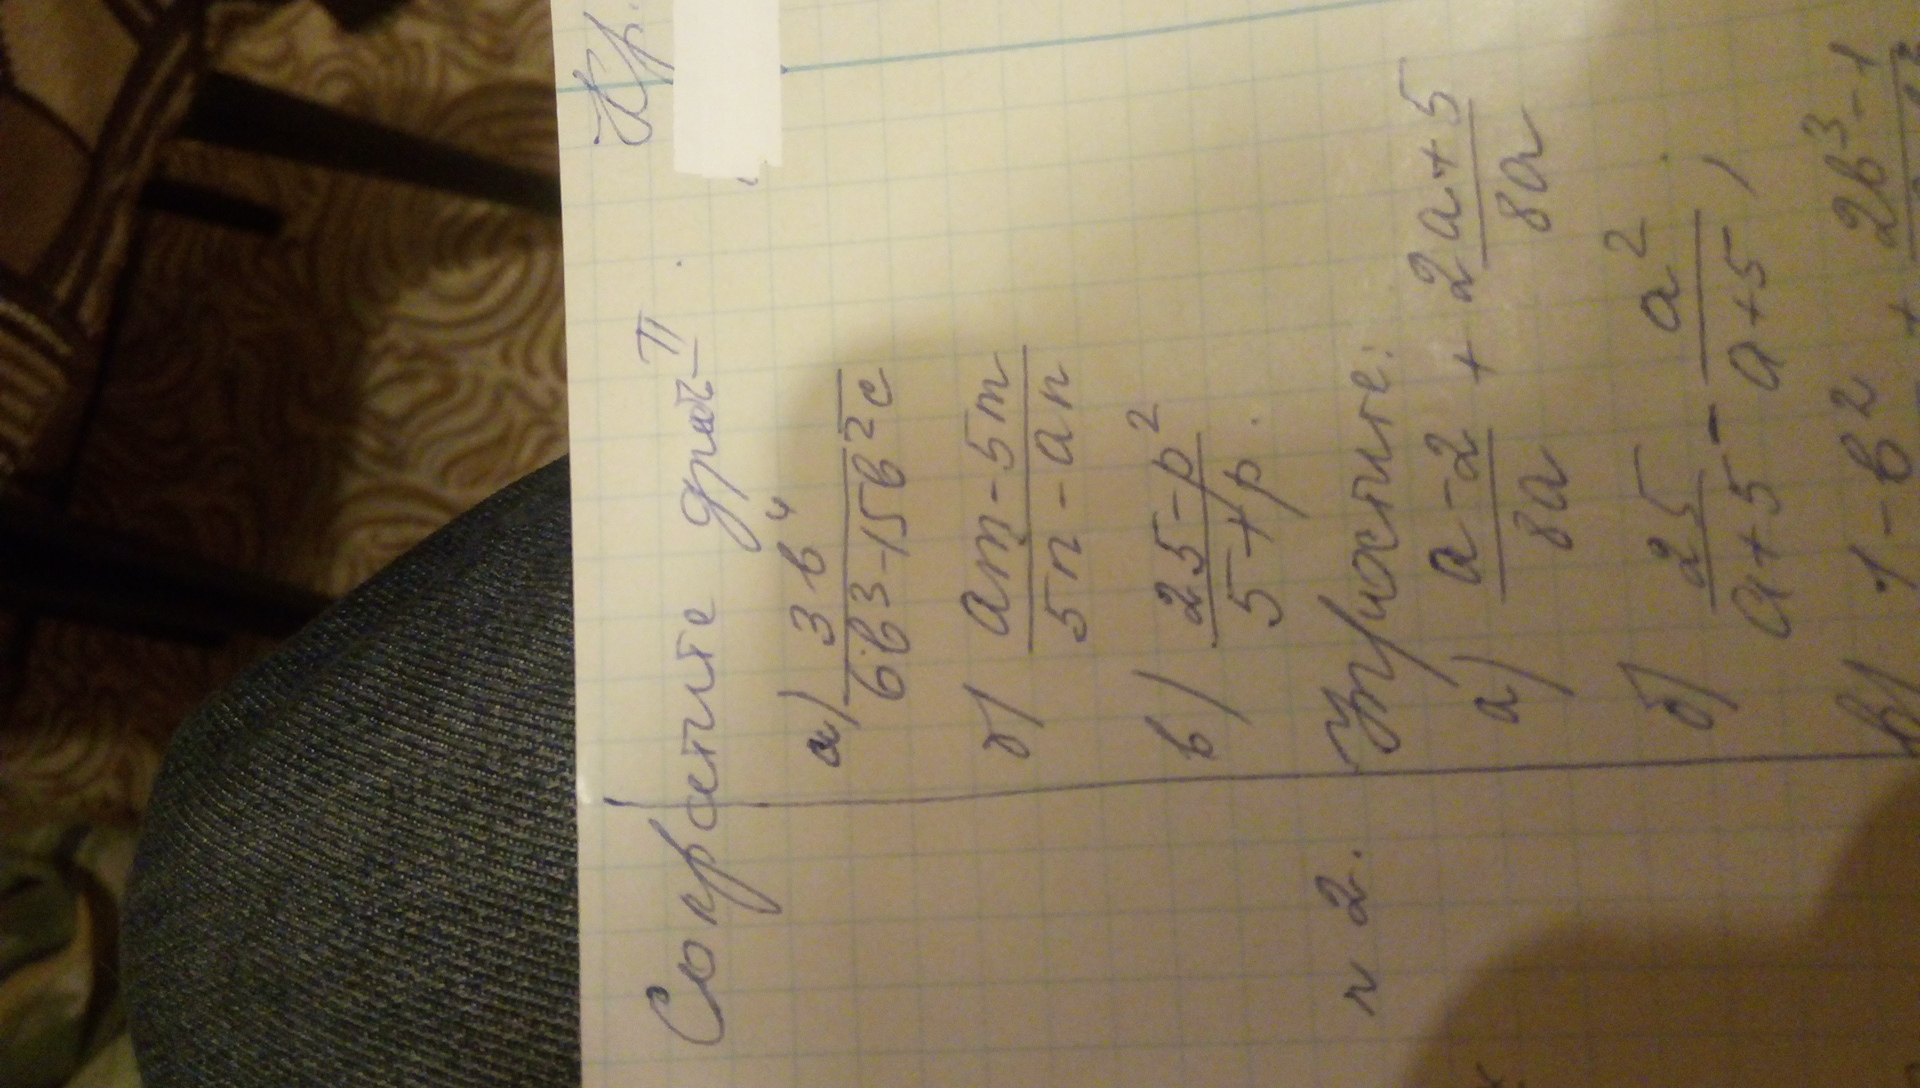 Кр.
Сократите дробь
а) 3в⁴ / 6в3-15в²с
б) am-5m / 5n-an
в) 25-p² / 5+p.
N2. Упростите:
а) a-2 / 8a + 2a+5 / 8a
б) 25 / a+5 - a² / a+5 ,
в) 1-в² + 2в³-1